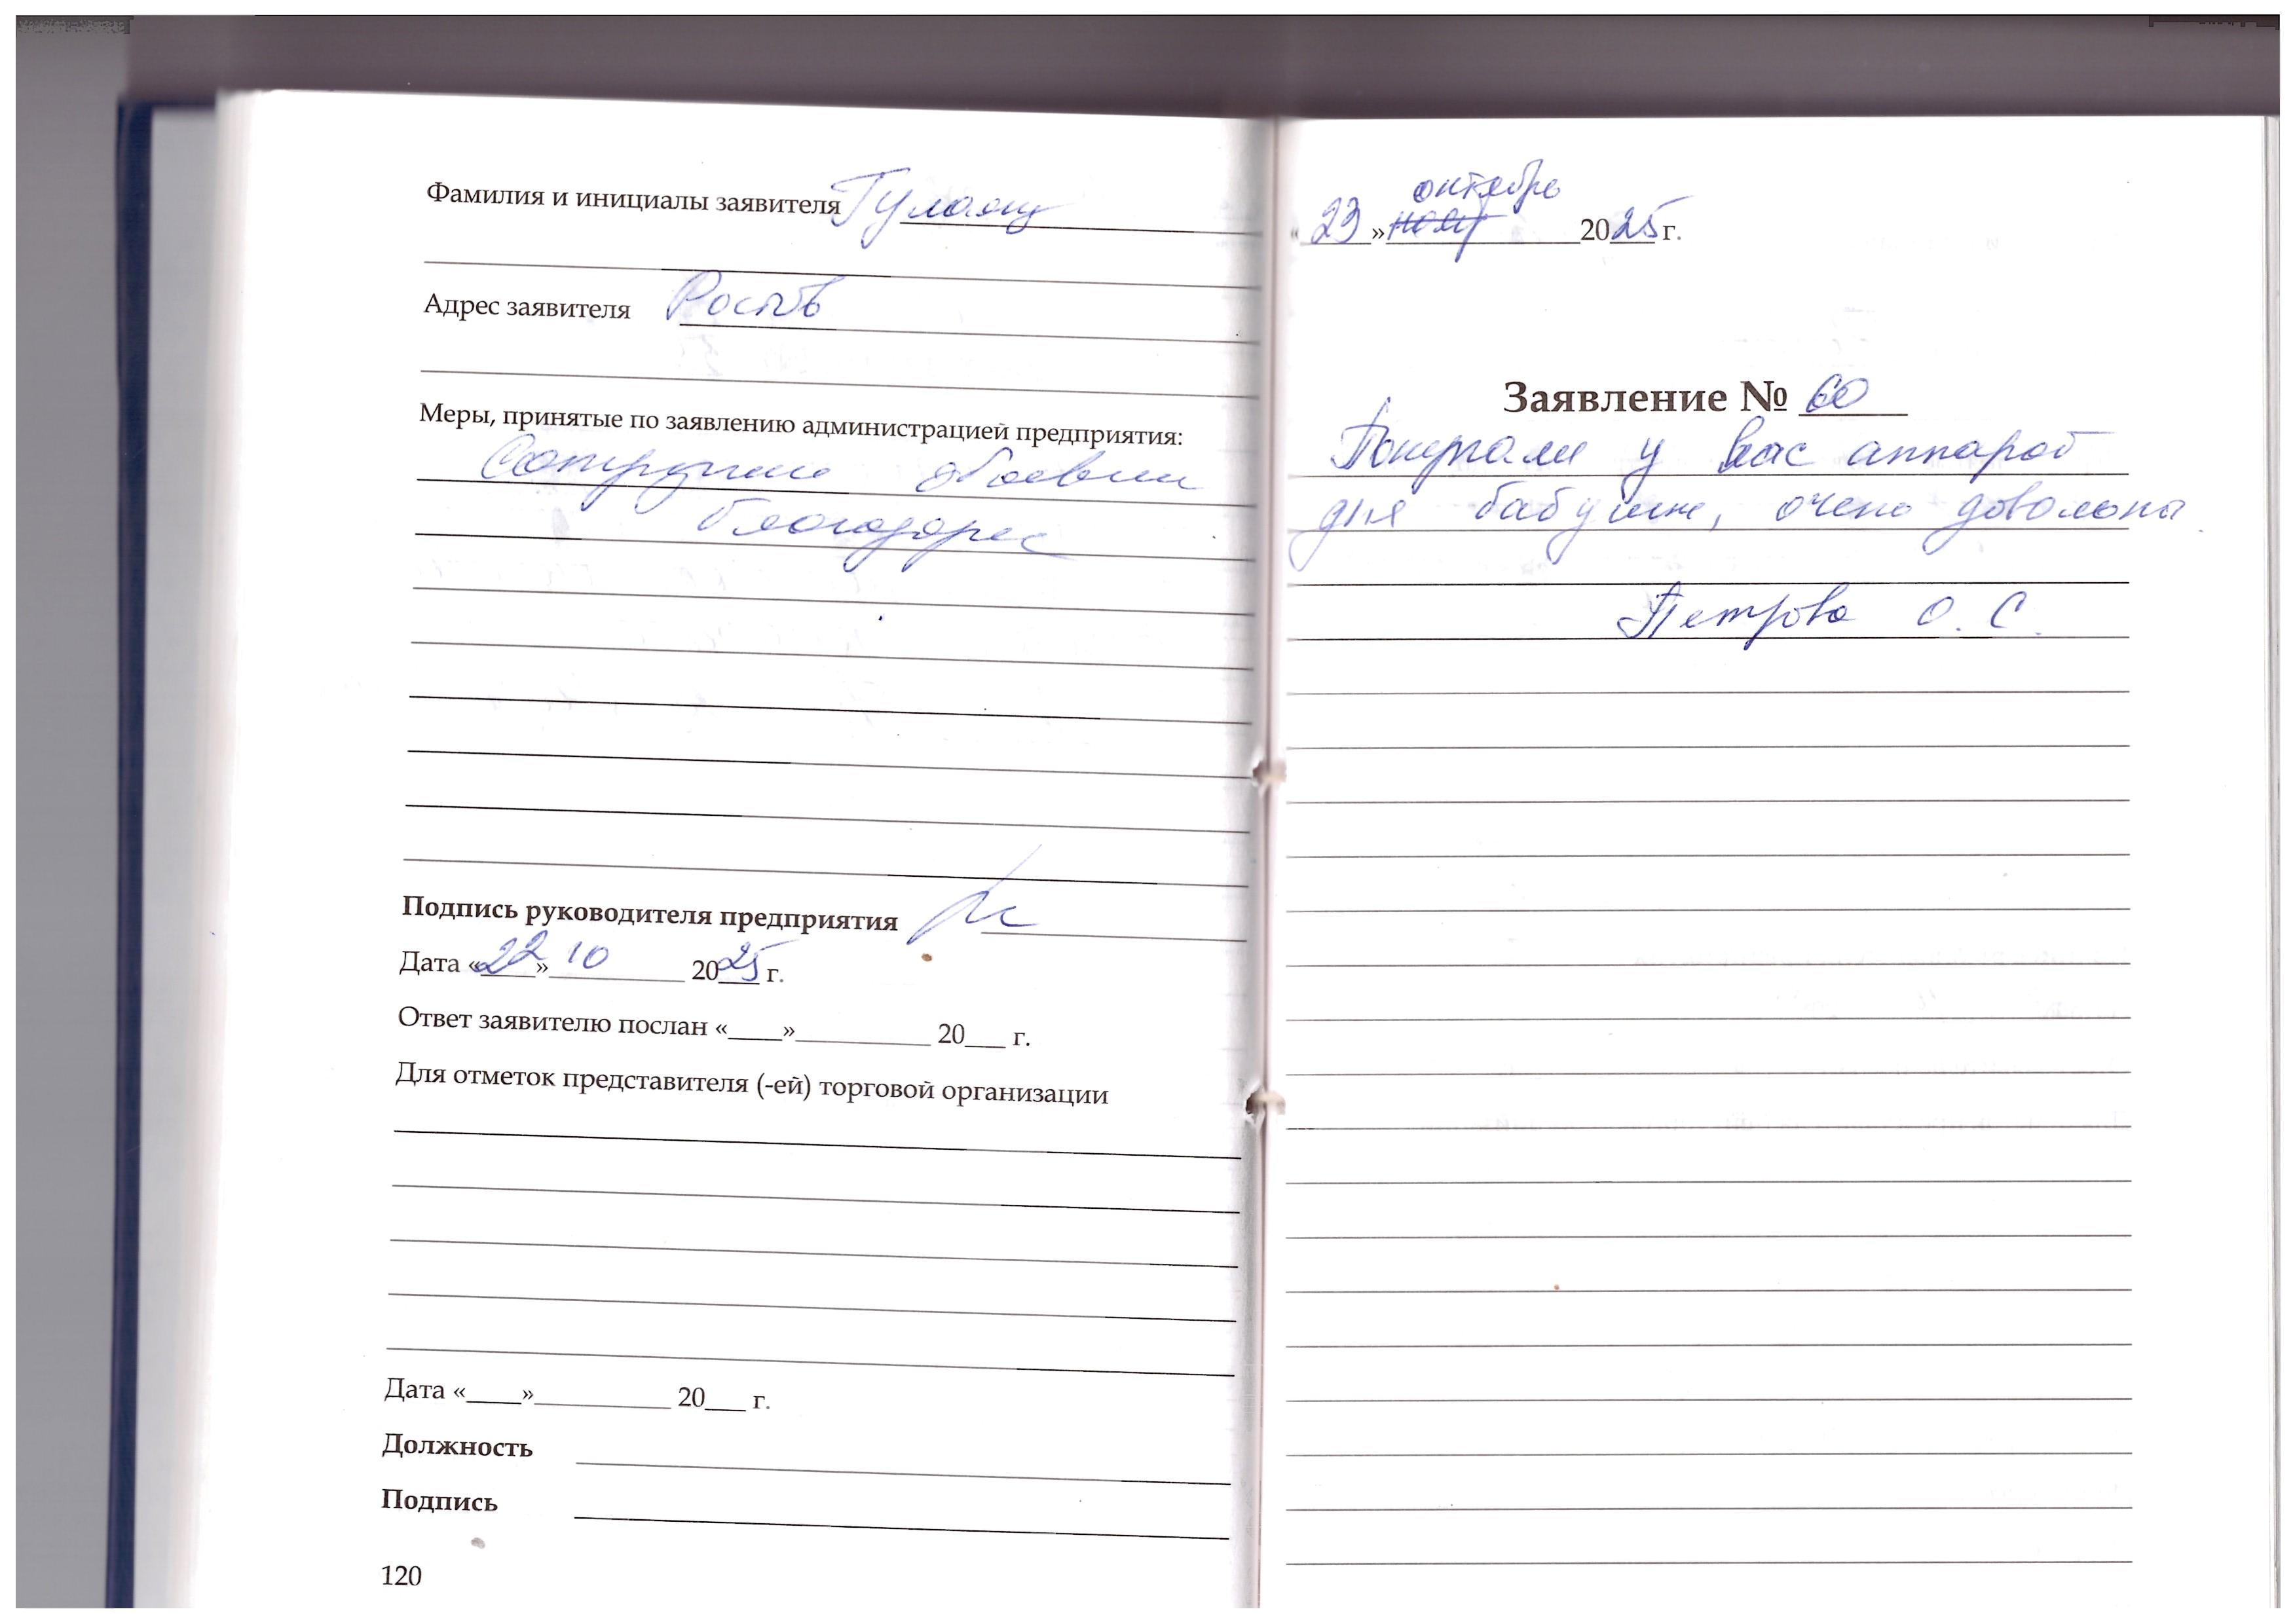 Фамилия и инициалы заявителя
Адрес заявителя Ростов
Меры, принятые по заявлению администрацией предприятия:
Подпись руководителя предприятия
Дата «22» 10 2025 г.
Ответ заявителю послан «____»__________ 20___ г.
Для отметок представителя (-ей) торговой организации
Дата «____»__________ 20___ г.
Должность
Подпись
120
октября
«23» 2025 г.
Заявление № 60
Покупали у вас аппарат
для бабушки, очень довольна.
Петрова О. С.